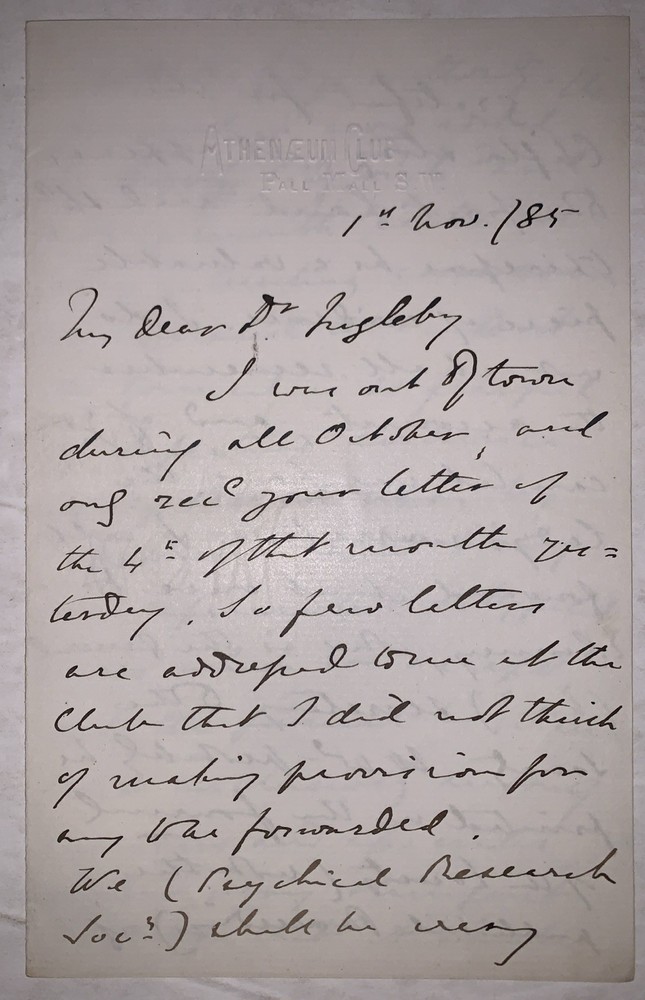 ATHENÆUM CLUB
PALL MALL S.W.
1st Nov. /85
My dear Dr Ingleby
I was out of town
during all October, and
only recd your letter of
the 4th of that month yes=
terday. So few letters
are addressed to me at the
Club that I did not think
of making provision for
any to be forwarded.
We (Psychical Research
Socy) shall be very